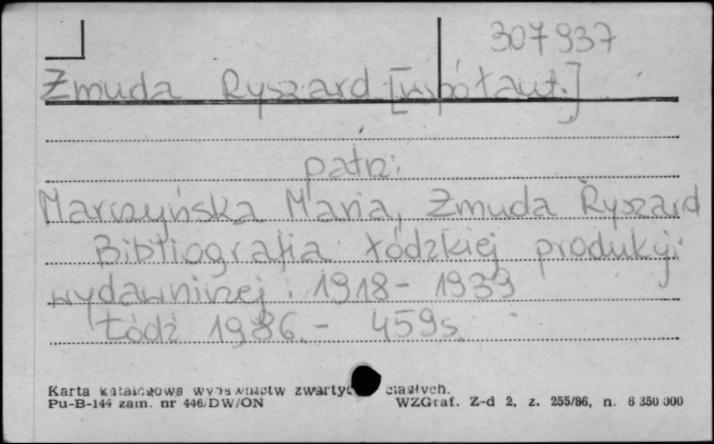 307937
Żmuda Ryszard [współaut.]
patrz:
Marczyńska Maria, Żmuda Ryszard
Bibliografia łódzkiej produkcji
wydawniczej: 1918-1939
Łódź 1986.- 459s.
Karta katalogowa wydawnictw zwartych ciągłych.
Pu-B-144 zam. nr 446/DW/ON WZGraf. Z-d 2, z. 255/86, n. 6 350 000